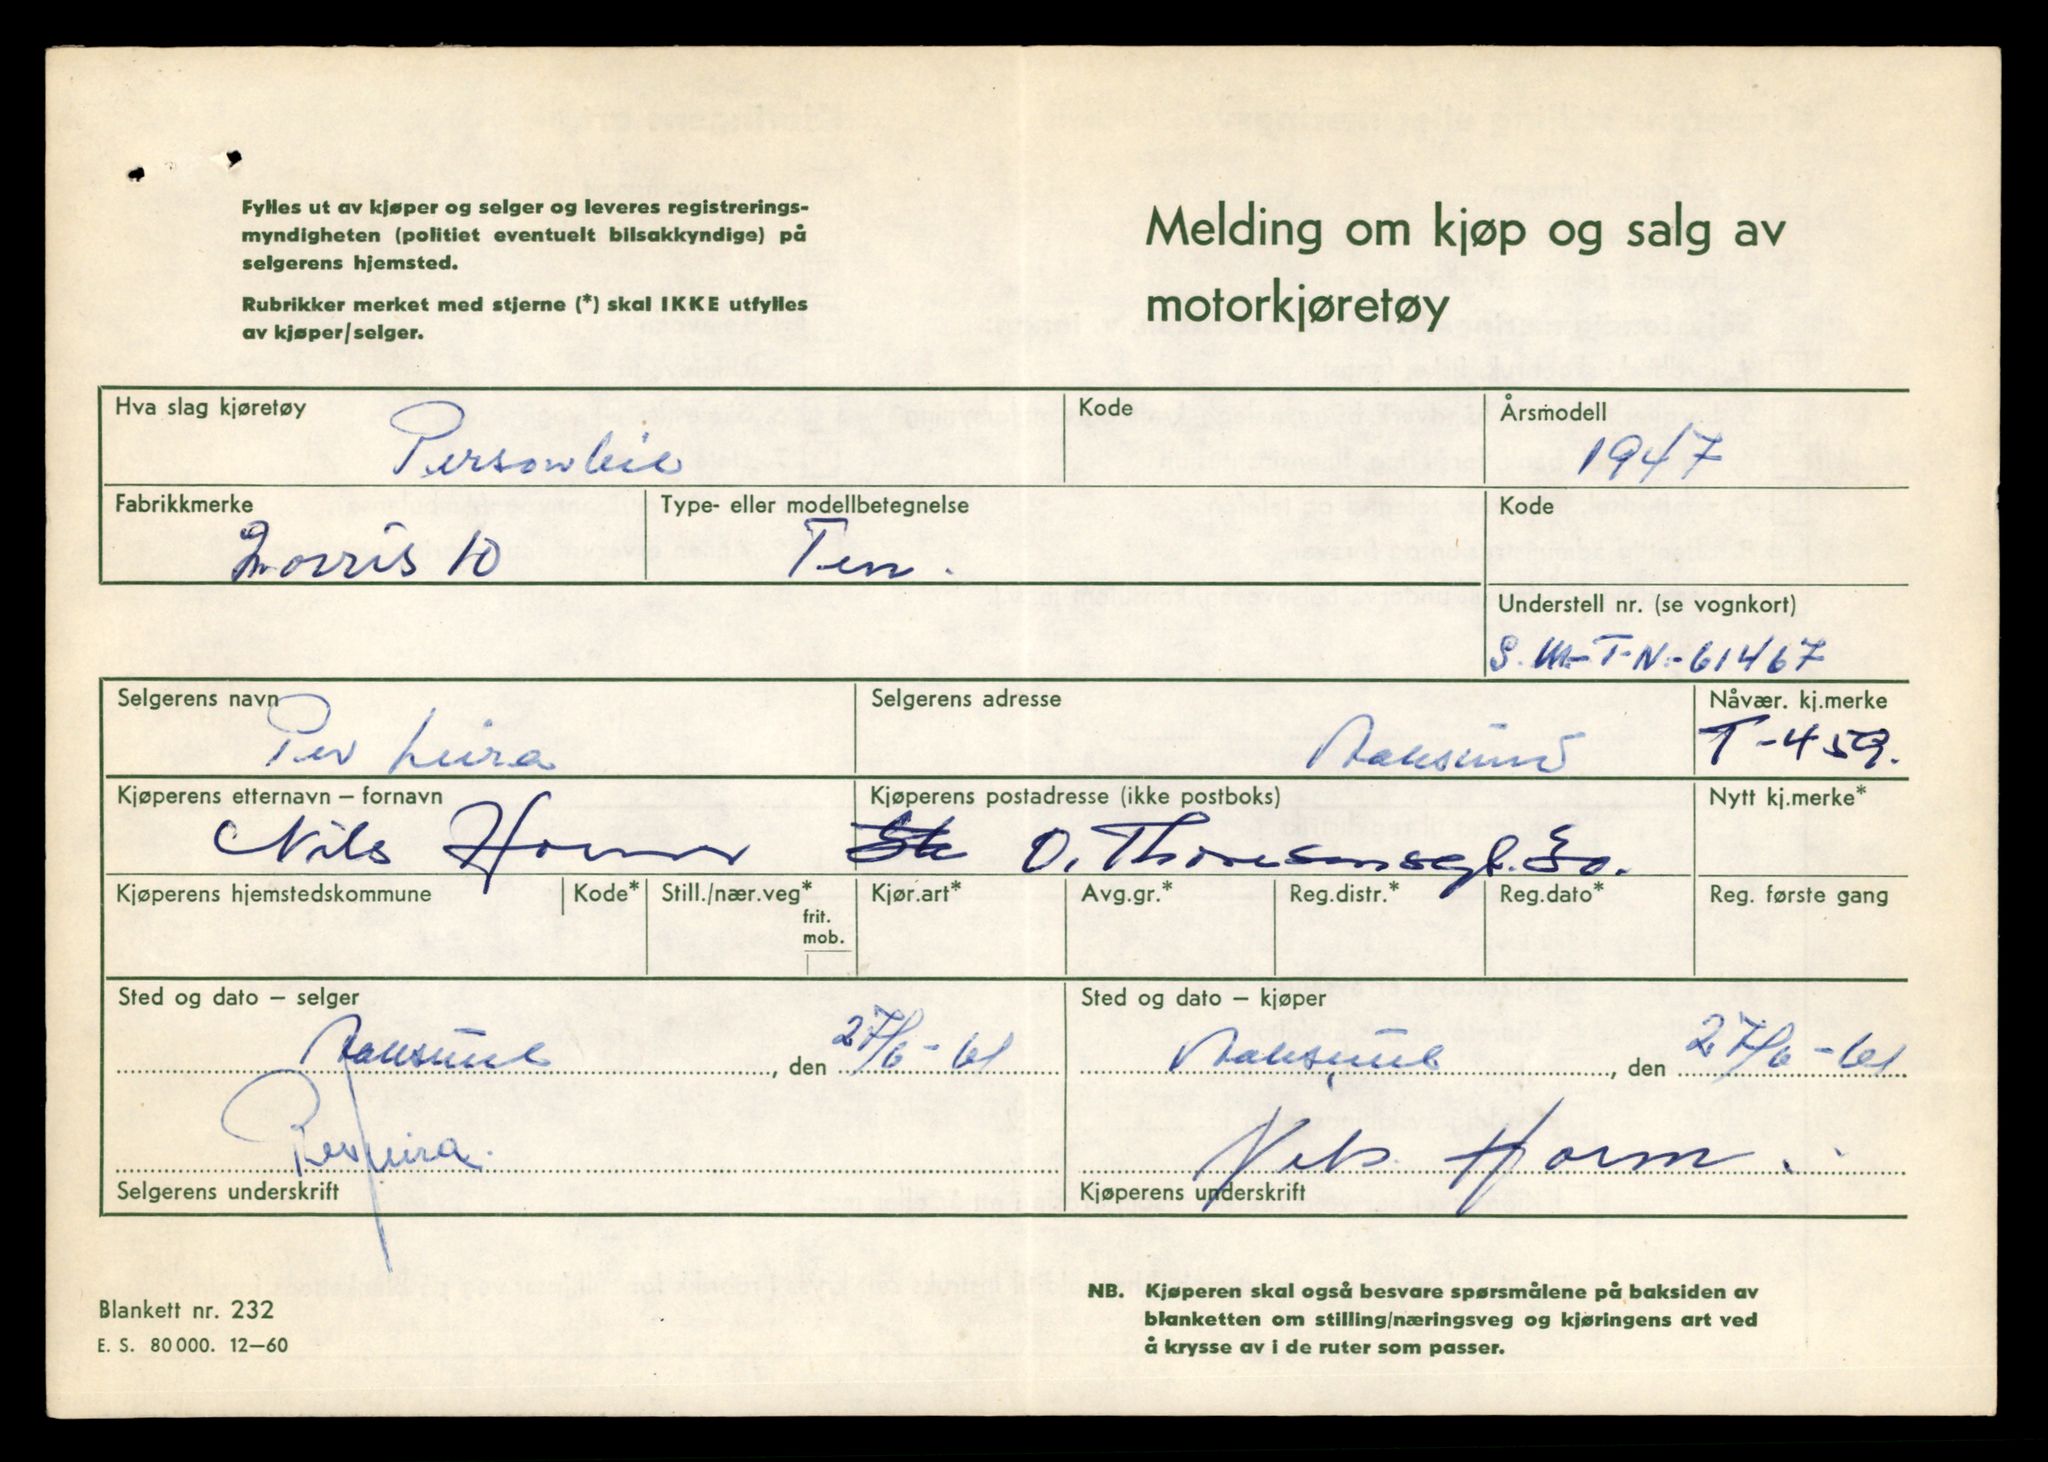 Fylles ut av kjøper og selger og leveres registrerings-
myndigheten (politiet eventuelt bilsakkyndige) på
selgerens hjemsted.
Rubrikker merket med stjerne (*) skal IKKE utfylles
av kjøper/selger.
Melding om kjøp og salg av
motorkjøretøy
Hva slag kjøretøy
Personbil
Kode
Årsmodell
1947
Fabrikkmerke
Morris 10
Type- eller modellbetegnelse
Ten.
Kode
Understell nr. (se vognkort)
S.M-T-N.-61467
Selgerens navn
Per Leira
Selgerens adresse
Nåvær. kj.merke
T-459.
Kjøperens etternavn – fornavn
Nils
Kjøperens postadresse (ikke postboks)
O. Thoresensgt.
Nytt kj.merke*
Kjøperens hjemstedskommune
Kode*
Still./nær.veg*
frit.
mob.
Kjør.art*
Avg.gr.*
Reg.distr.*
Reg.dato*
Reg. første gang
Sted og dato – selger
, den 27/6-61
Sted og dato – kjøper
, den 27/6-61
Per Leira.
Selgerens underskrift
Nils
Kjøperens underskrift
Blankett nr. 232
E. S. 80 000. 12–60
NB. Kjøperen skal også besvare spørsmålene på baksiden av
blanketten om stilling/næringsveg og kjøringens art ved
å krysse av i de ruter som passer.